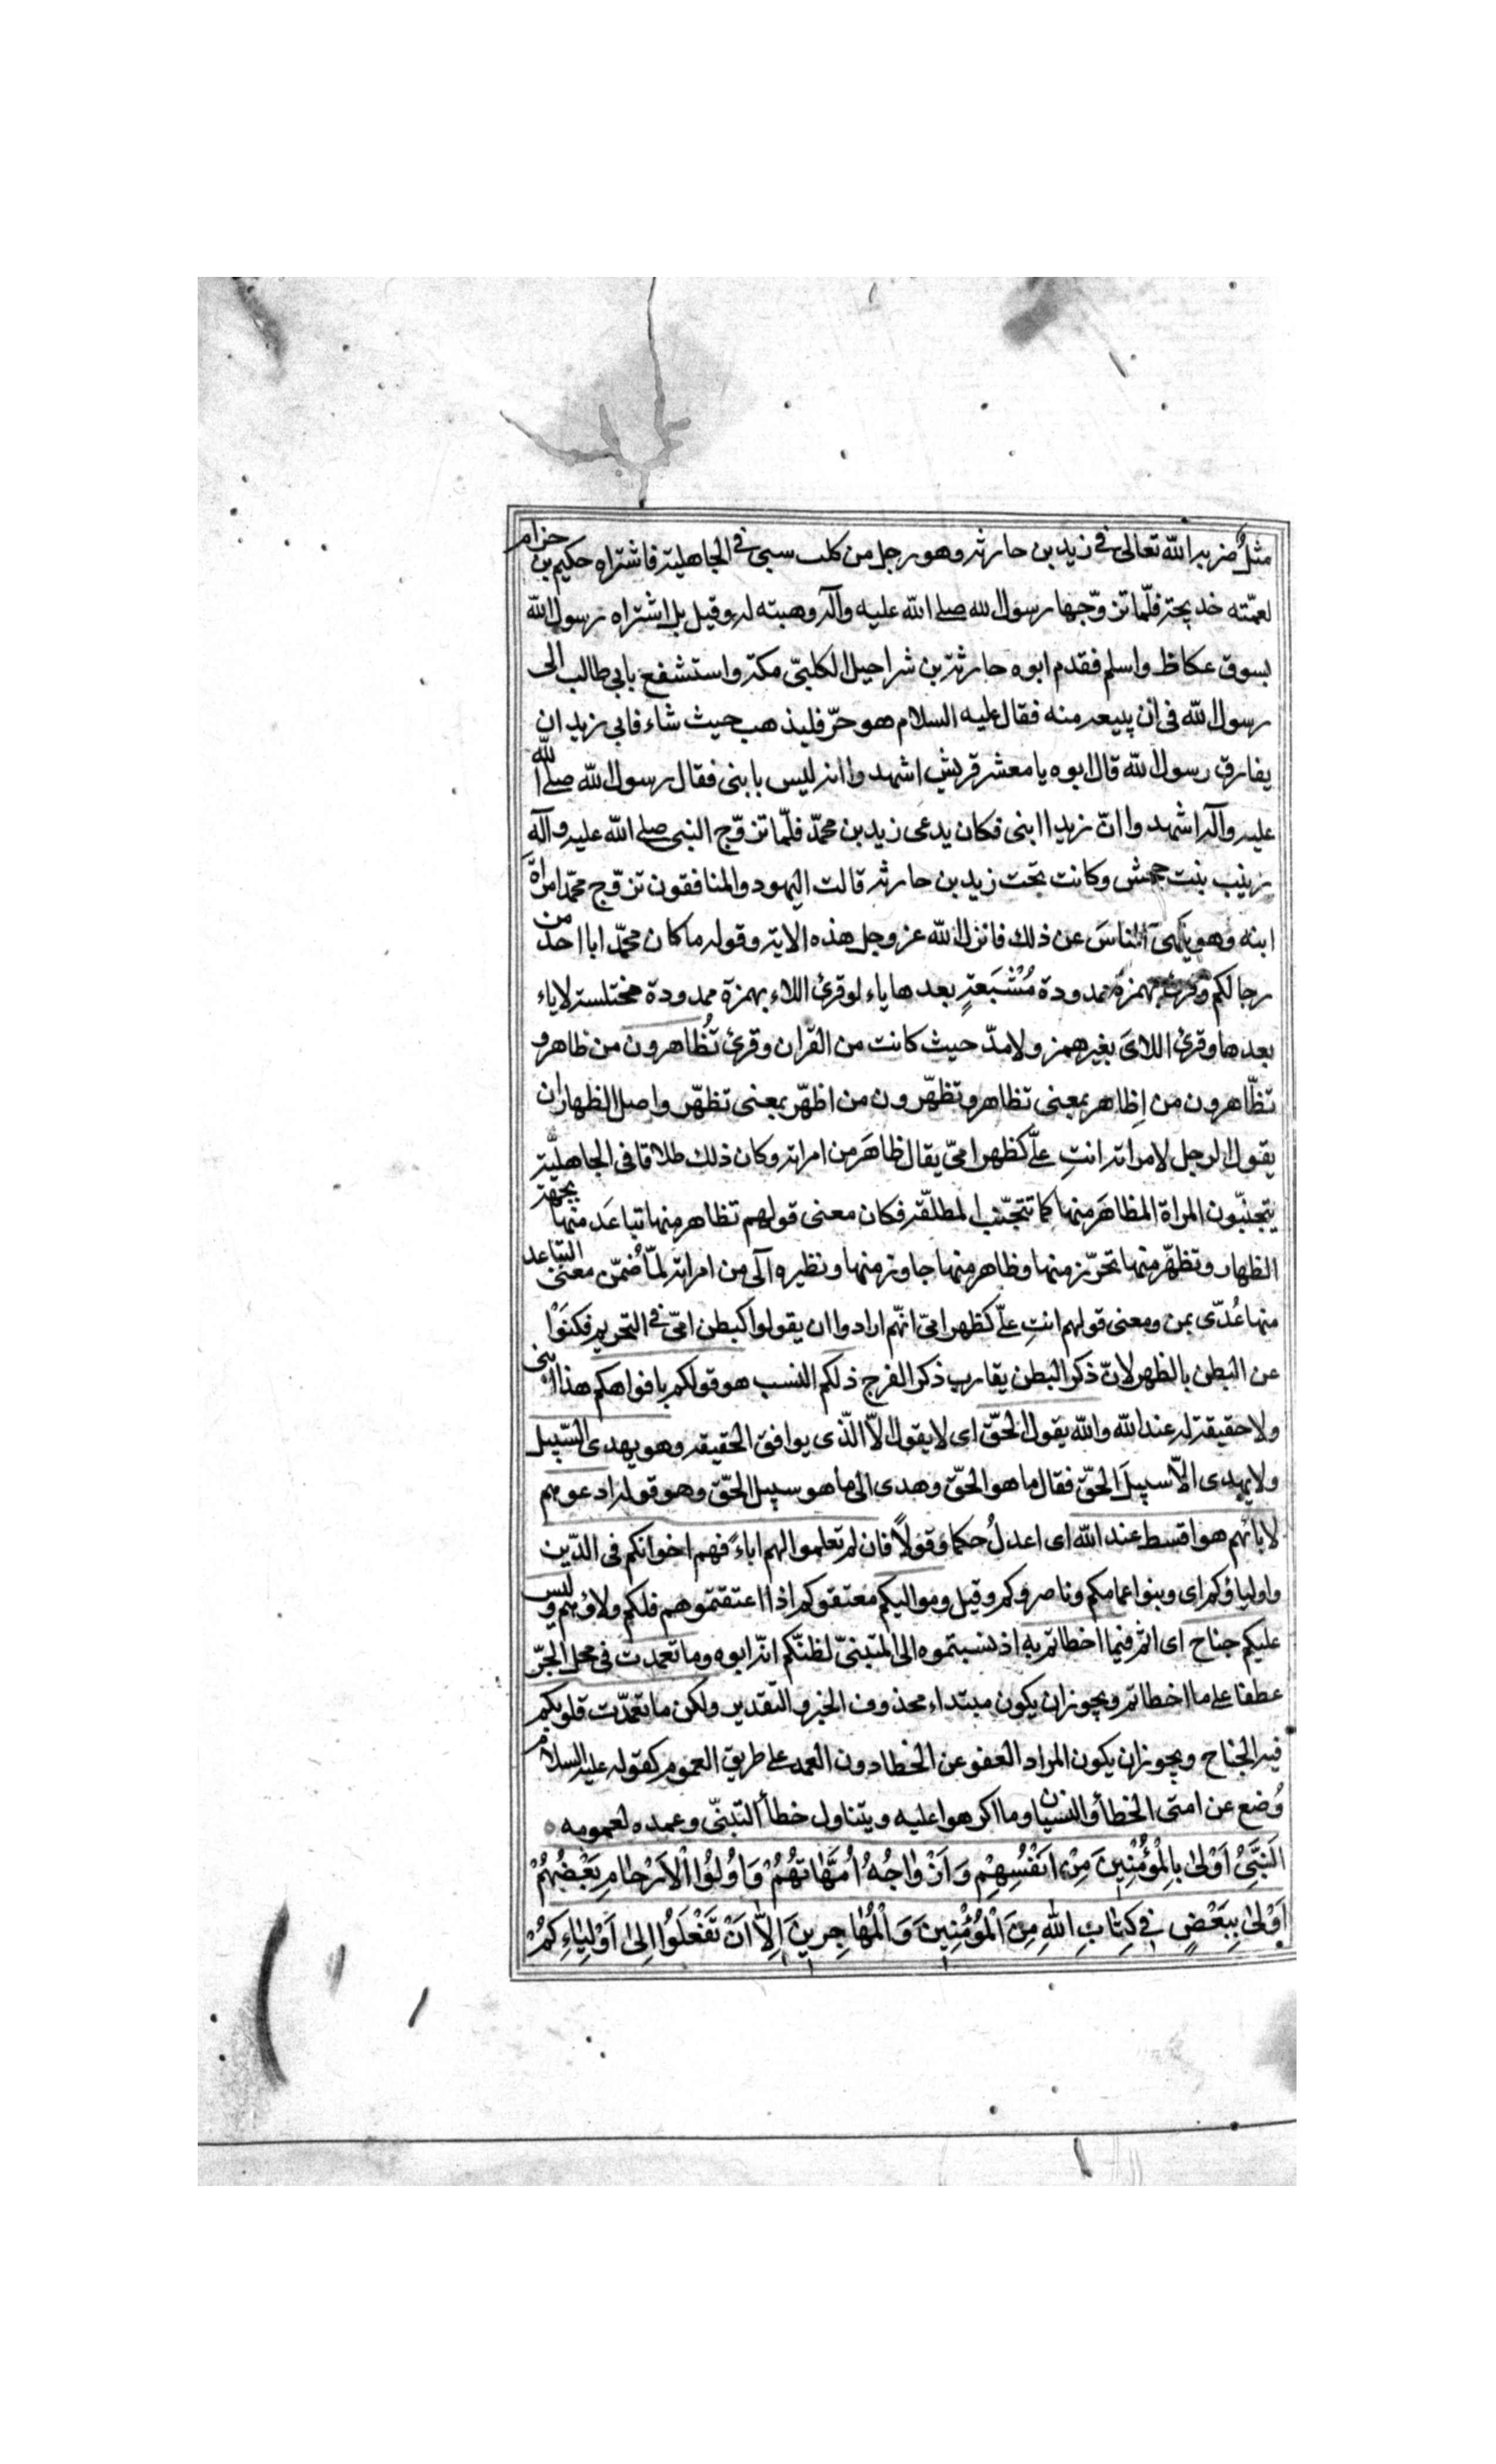 مثلٌ ضربه الله تعالى في زيد بن حارثه وهو رجل من كلب سبى في الجاهلية فاشتراه حكيم بن حزام
لعمّته خديجة فلمّا تزوّجها رسول الله صلى الله عليه وآله وهبته له وقيل بل اشتراه رسول الله
بسوق عكاظ واسلم فقدم ابوه حارثة بن شراحيل الكلبىّ مكة واستشفع بابى طالب الى
رسول الله فى ان يبيعه منه فقال عليه السلام هو حرّ فليذهب حيث شاء فابى زيد ان
يفارق رسول الله قال ابوه يا معشر قريش اشهدوا انه ليس بابنى فقال رسول الله صلى الله
عليه وآله اشهدوا انّ زيدا ابنى فكان يدعى زيد بن محمّد فلمّا تزوّج النبى صلى الله عليه وآله
زينب بنت جحش وكانت تحت زيد بن حارثه قالت اليهود والمنافقون تزوّج محمّد امراة
ابنه وهو ينهى الناسَ عن ذلك فانزل الله عز وجل هذه الاية وقوله ما كان محمّد ابا احد من
رجالكم وقرئ بهمزة ممدودة مُشْبَعةٍ بعدها ياء لو قرئ اللاء بهمزة ممدودة مختلسة لا ياء
بعدها وقرئ اللاىَ بغير همز ولا مدّ حيث كانت من القران وقرئ تُظاهرون من ظاهر و
تظّاهرون من اِظاهر بمعنى تظاهر وتظهّرون من اظهّر بمعنى تظهّر واصل الظهار ان
يقول الرجل لامراته انتِ علىّ كظهر امىّ يقال ظاهَر من امراته وكان ذلك طلاقا فى الجاهليّة
يتجنّبون المراة المظاهَر منها كما تتجنّب المطلّقة فكان معنى قولهم تظاهر منها تباعَد منها بجهة
الظهار وتظهّر منها تحرّز منها وظاهر منها جاوز منها ونظيره آلى من امراته لمّا ضُمّن معنى التباعد
منها عُدّى بمن ومعنى قولهم انتِ علىّ كظهر امىّ انهّم ارادوا ان يقولوا كبطن امىّ فى التحريم فكنَوْا
عن البطن بالظهر لانّ ذكر البطن يقارب ذكر الفرج ذلكم النسب هو قولكم بافواهكم هذا ابنى
ولا حقيقة له عند الله والله يقول الحقّ اى لا يقول الّا الّذى يوافق الحقيقه وهو يهدى السّبيل
ولا يهدى الّا سبيلَ الحقّ فقال ما هو الحقّ وهدى الى ما هو سبيل الحقّ وهو قوله ادعوهم
لابائهم هو اقسط عند الله اى اعدلُ حكما وقولاً فان لم تعلموا لهم اباءً فهم اخوانكم فى الدّين
واولياؤكم اى وبنوا عمامكم وناصروكم وقيل ومواليكم معتقوكم اذا اعتقتموهم فلكم ولاؤهم وليس
عليكم جناح اى اثم فيما اخطاتم به اذ نسبتموه الى المتبنىّ لظنّكم انّه ابوه وما تعمدت فى محل الجرّ
عطفا على ما اخطاتم ويجوز ان يكون مبتداء محذوف الخبر والتّقدير ولكن ما تعمّدت قلوبكم
فيه الجناح ويجوز ان يكون المراد العفو عن الخطا دون العمد على طريق العموم كقوله عليه السلام
وُضع عن امتى الخطأ والنسيان وما اكرهوا عليه ويتناول خطأ التبنّى وعمده لعمومه
اَلنَّبِىُّ اَوْلىٰ بِالْمُؤْمِنِينَ مِنْ اَنْفُسِهِمْ وَاَزْوٰاجُهُ اُمَّهٰاتُهُمْ وَاُولُوا الْاَرْحٰامِ بَعْضُهُمْ
اَوْلىٰ بِبَعْضٍ فِي كِتٰابِ اللهِ مِنَ الْمُؤْمِنِينَ وَالْمُهٰاجِرِينَ اِلّٰا اَنْ تَفْعَلُوا اِلىٰ اَوْلِيٰاءِكُمْ